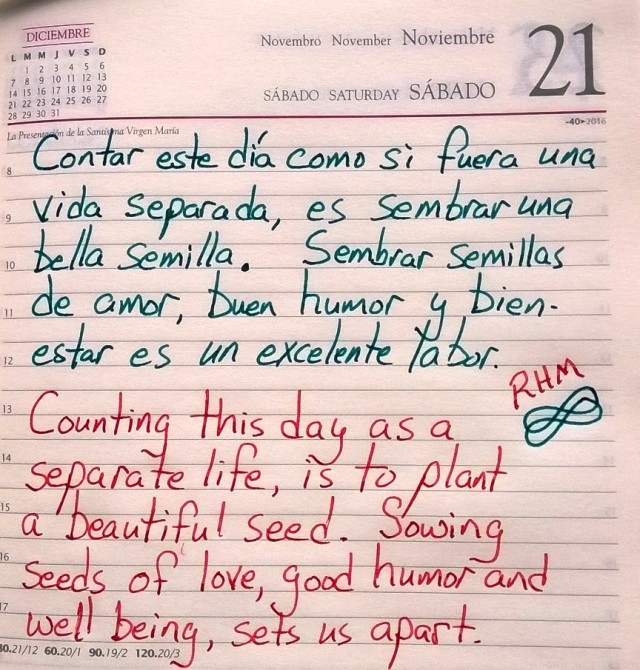 DICIEMBRE
L M M J V S D
1 2 3 4 5 6
7 8 9 10 11 12 13
14 15 16 17 18 19 20
21 22 23 24 25 26 27
28 29 30 31
Novembro November Noviembre
SÁBADO SATURDAY SÁBADO
21
-40▸2016
La Presentación de la Santísima Virgen María
8 Contar este día como si fuera una
9 vida separada, es sembrar una
10 bella semilla. Sembrar semillas
11 de amor, buen humor y bien-
12 estar es un excelente labor.
RHM
13 Counting this day as a
14 separate life, is to plant
15 a beautiful seed. Sowing
16 seeds of love, good humor and
17 well being, sets us apart.
30.21/12 60.20/1 90.19/2 120.20/3